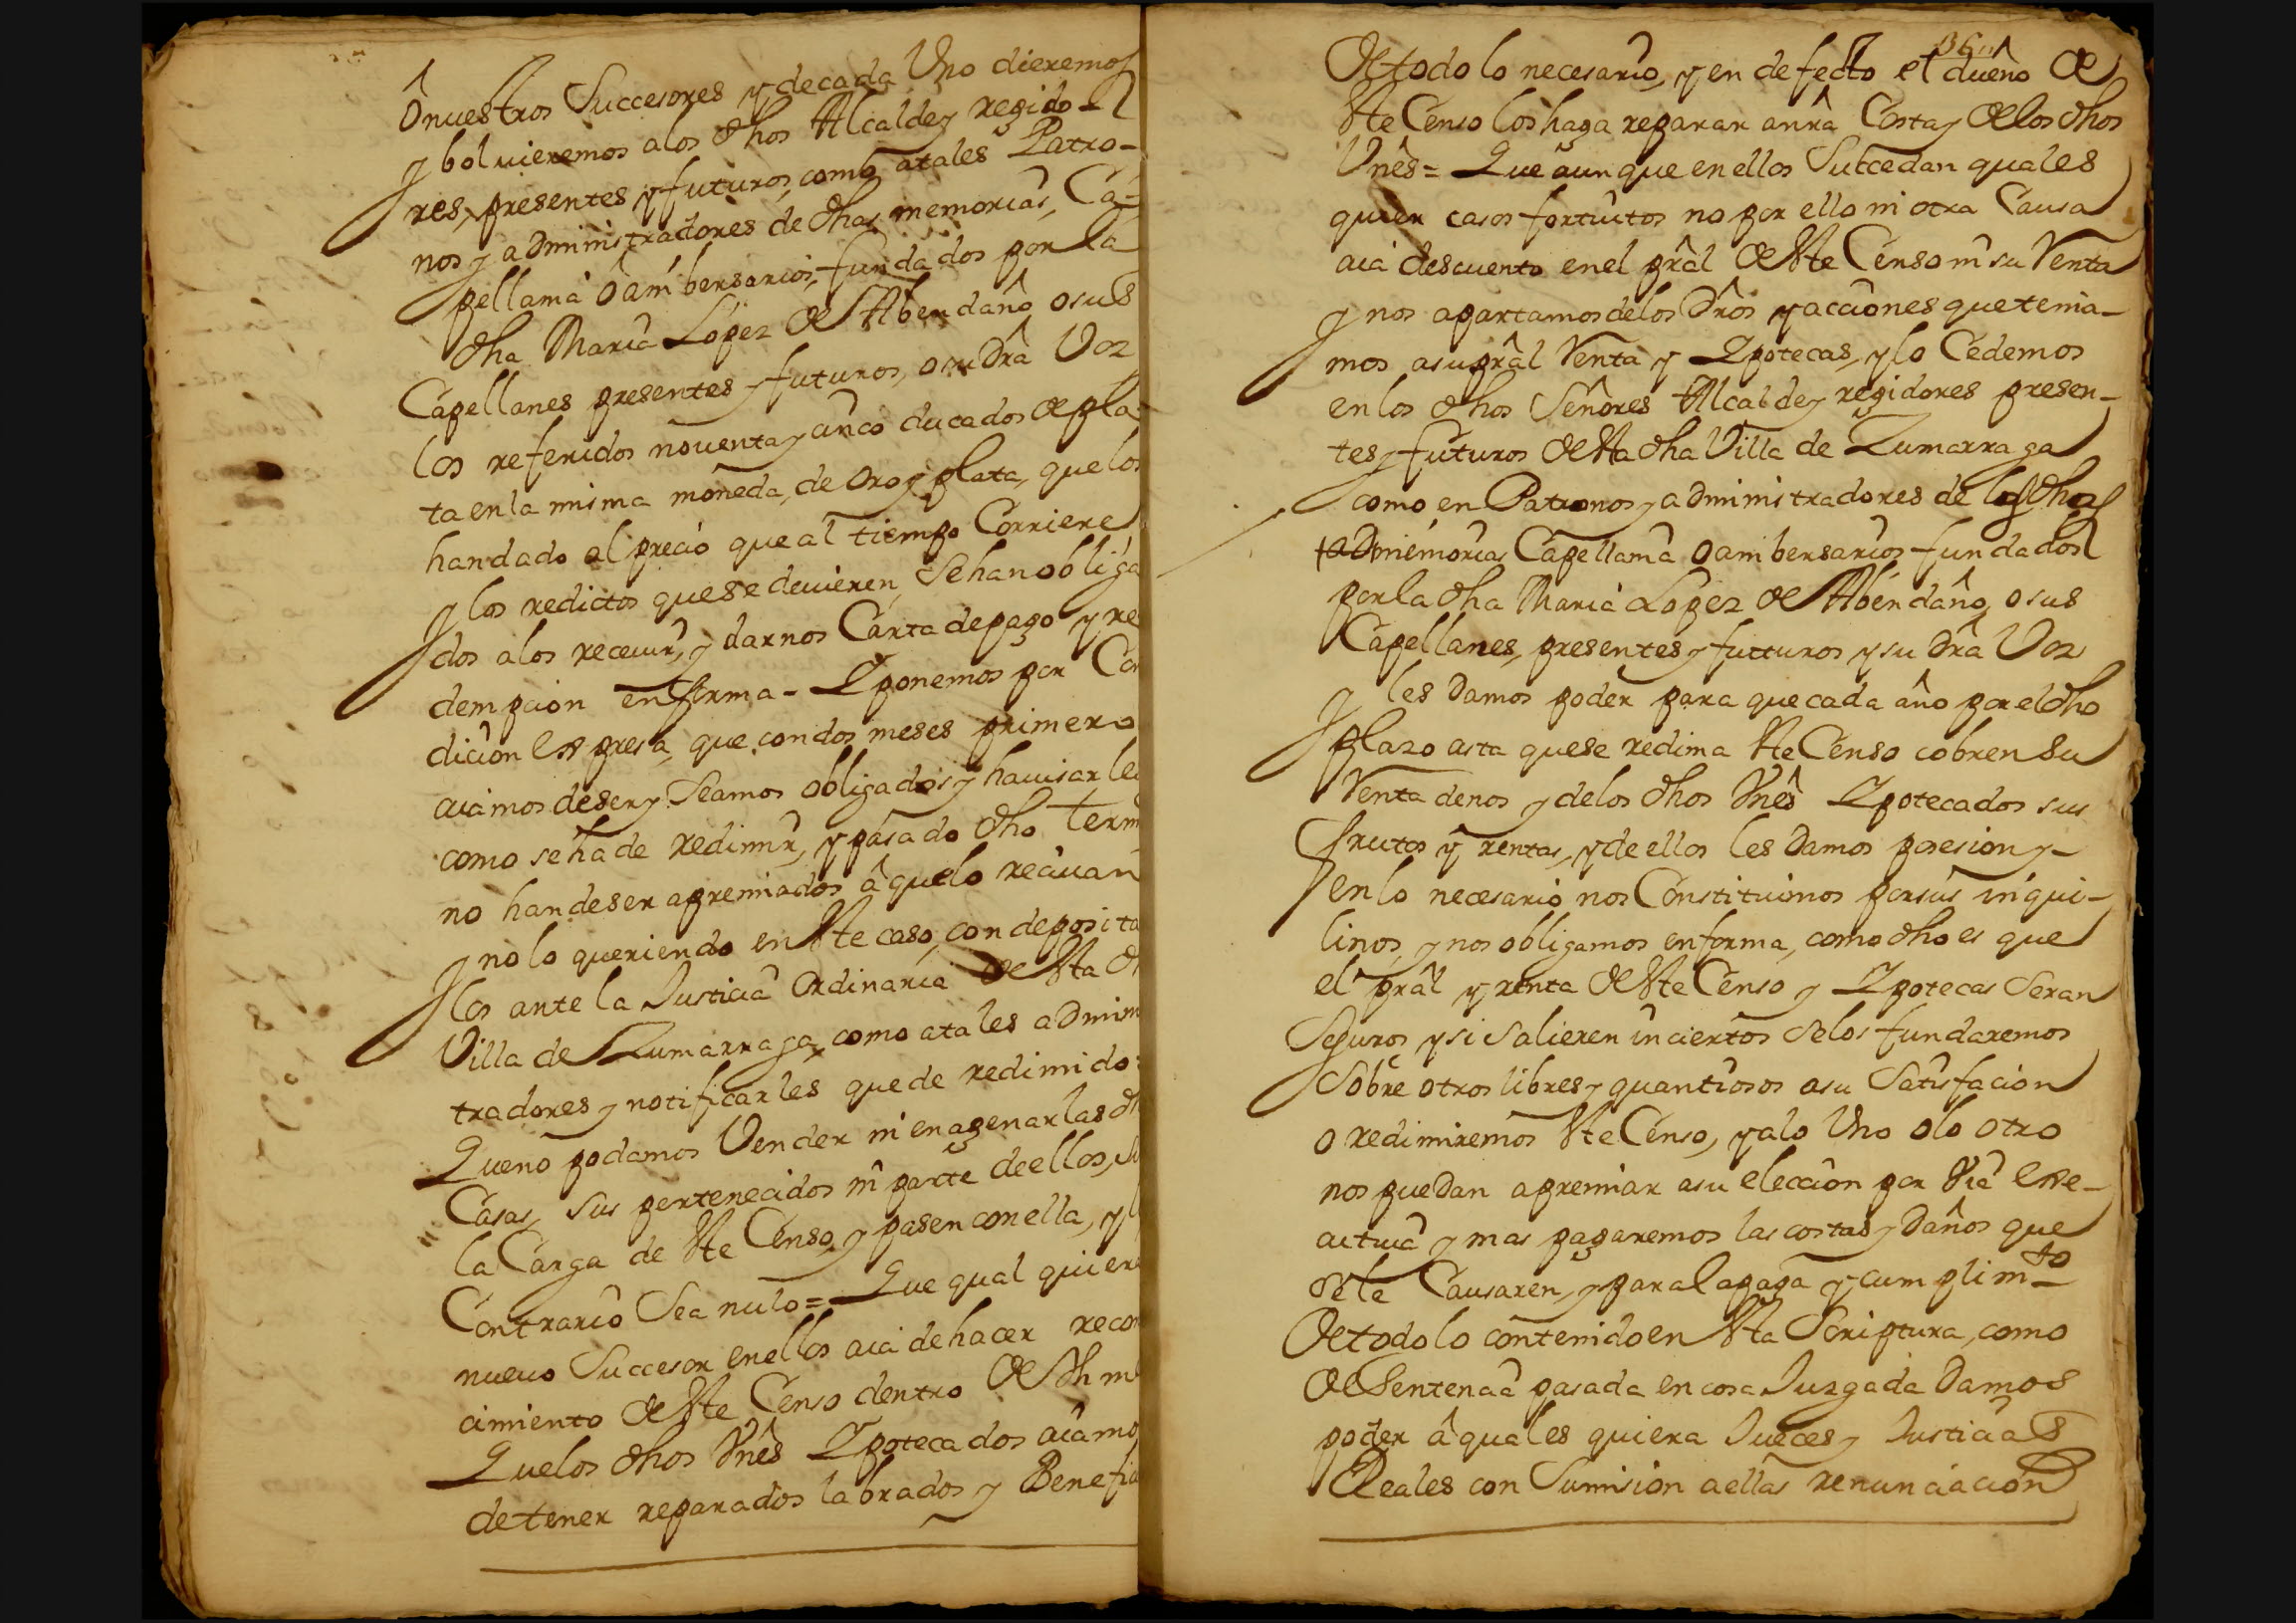 ô nuestros Succesores y de cada Uno dieremos
y bolvieremos a los dhos Alcalde y regido-
res, presentes y futuros, como a tales Patro-
nos y administradores de dhas memorias, Ca-
pellania ô anibersarios, fundados por la
dha Maria Lopez de Abendaño o sus
Capellanes presentes y futuros, o su dra Voz
los referidos noventa y cinco ducados de pla-
ta en la misma moneda, de Oro y plata, que los
han dado al precio que al tiempo Corriere
y los redictos que se devieren, Se han obliga
dos a los recevir, y darnos Carta de pago y re
dempcion en forma - Y ponemos por Con
dicion Expresa, que con dos meses primero
aiamos de ser y Seamos obligados y havisarles
como se ha de redimir, y pasado dho term
no han de ser apremiados â que lo recivan
y no lo queriendo en este caso, con deposita
los ante la Justicia Ordinaria de esta dh
Villa de Zumarraga, como a tales admini
tradores y notificarles quede redimido:
Que no podamos Vender ni enagenar las dh
Casas, sus pertenecidos ni parte de ellos, si
la Carga de este Censo, y pasen con ella, y l
Contrario Sea nulo = Que qual quiera
nuevo Succesor en ellos aia de hacer recon
cimiento de este Censo dentro de dh m
Que los dhos Vnês Ypotecados aiamos
de tener reparados labrados y Benefici
36
de todo lo necesario, y en defecto el dueño de
este Censo los haga reparar a nrâ Costa y de los dhos
Vnês = Que aunque en ellos Succedan quales
quier casos fortuitos no por ello ni otra Causa
aia descuento en el prâl de este Censo ni su Renta
y nos apartamos de los drôs y acciones que tenia-
mos a su prâl Renta y Ypotecas, y lo Cedemos
en los dhos Señores Alcalde y regidores presen-
tes y futuros de esta dha Villa de Zumarraga
como en Patronos y administradores de los dhos
memorias Capellania o anibersarios fundados
por la dha Maria Lopez de Abendaño, o sus
Capellanes, presentes y futturos y su dra Voz
y les damos poder para que cada año por el dho
plazo asta que se redima este Censo cobren su
Renta de nos y de los dhos Vnês Ypotecados sus
frutos y rentas, y de ellos les damos posesion y-
en lo necesario nos Constituimos por sus inqui-
linos, y nos obligamos en forma, como dho es que
el prâl y renta de este Censo y Ypotecas Seran
Seguros y si Salieren inciertos Selos fundaremos
Sobre otros libres y quantiosos a su Satisfacion
o redimiremos este Censo, y a lo Uno o lo otro
nos puedan apremiar a su eleccion por Via Exe-
cutiva y mas pagaremos las costas y Daños que
Se le Causaren, y para la paga y cumplimto
de todo lo contenido en esta Scriptura, como
de Sentencia pasada en cosa Juzgada Damos
poder â quales quiera Jueces y Justicias
Reales con Sumision a ellas renunciacion